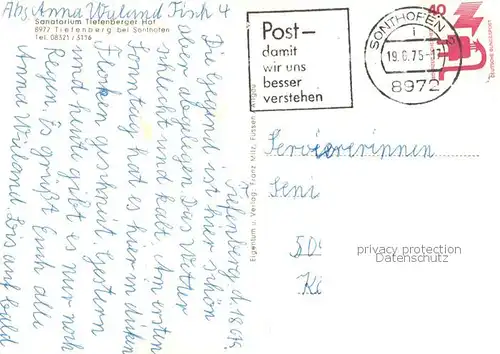 Abs. Anna Wieland Fisch 4
Sanatorium Tiefenberger Hof
8972 Tiefenberg bei Sonthofen
Tel. 08321 / 3116
Tiefenberg, d. 18.6.75.
Die Gegend ist hier schön
aber abgelegen. Das Wetter
schlecht und kalt. Am ersten
Sonntag hat es hier in dicken
Flocken geschneit. Gestern
und heute gibt es nur noch
Regen. Es grüßt Euch alle
Anna Wieland. Bis auf bald
Eigentum u. Verlag: Franz Milz, Füssen Allgäu
Post–
damit
wir uns
besser
verstehen
SONTHOFEN
19.6.75-17
8972
40
DEUTSCHE BUNDESPOST
Serviererinnen
Seni
50
K
privacy protection
Datenschutz